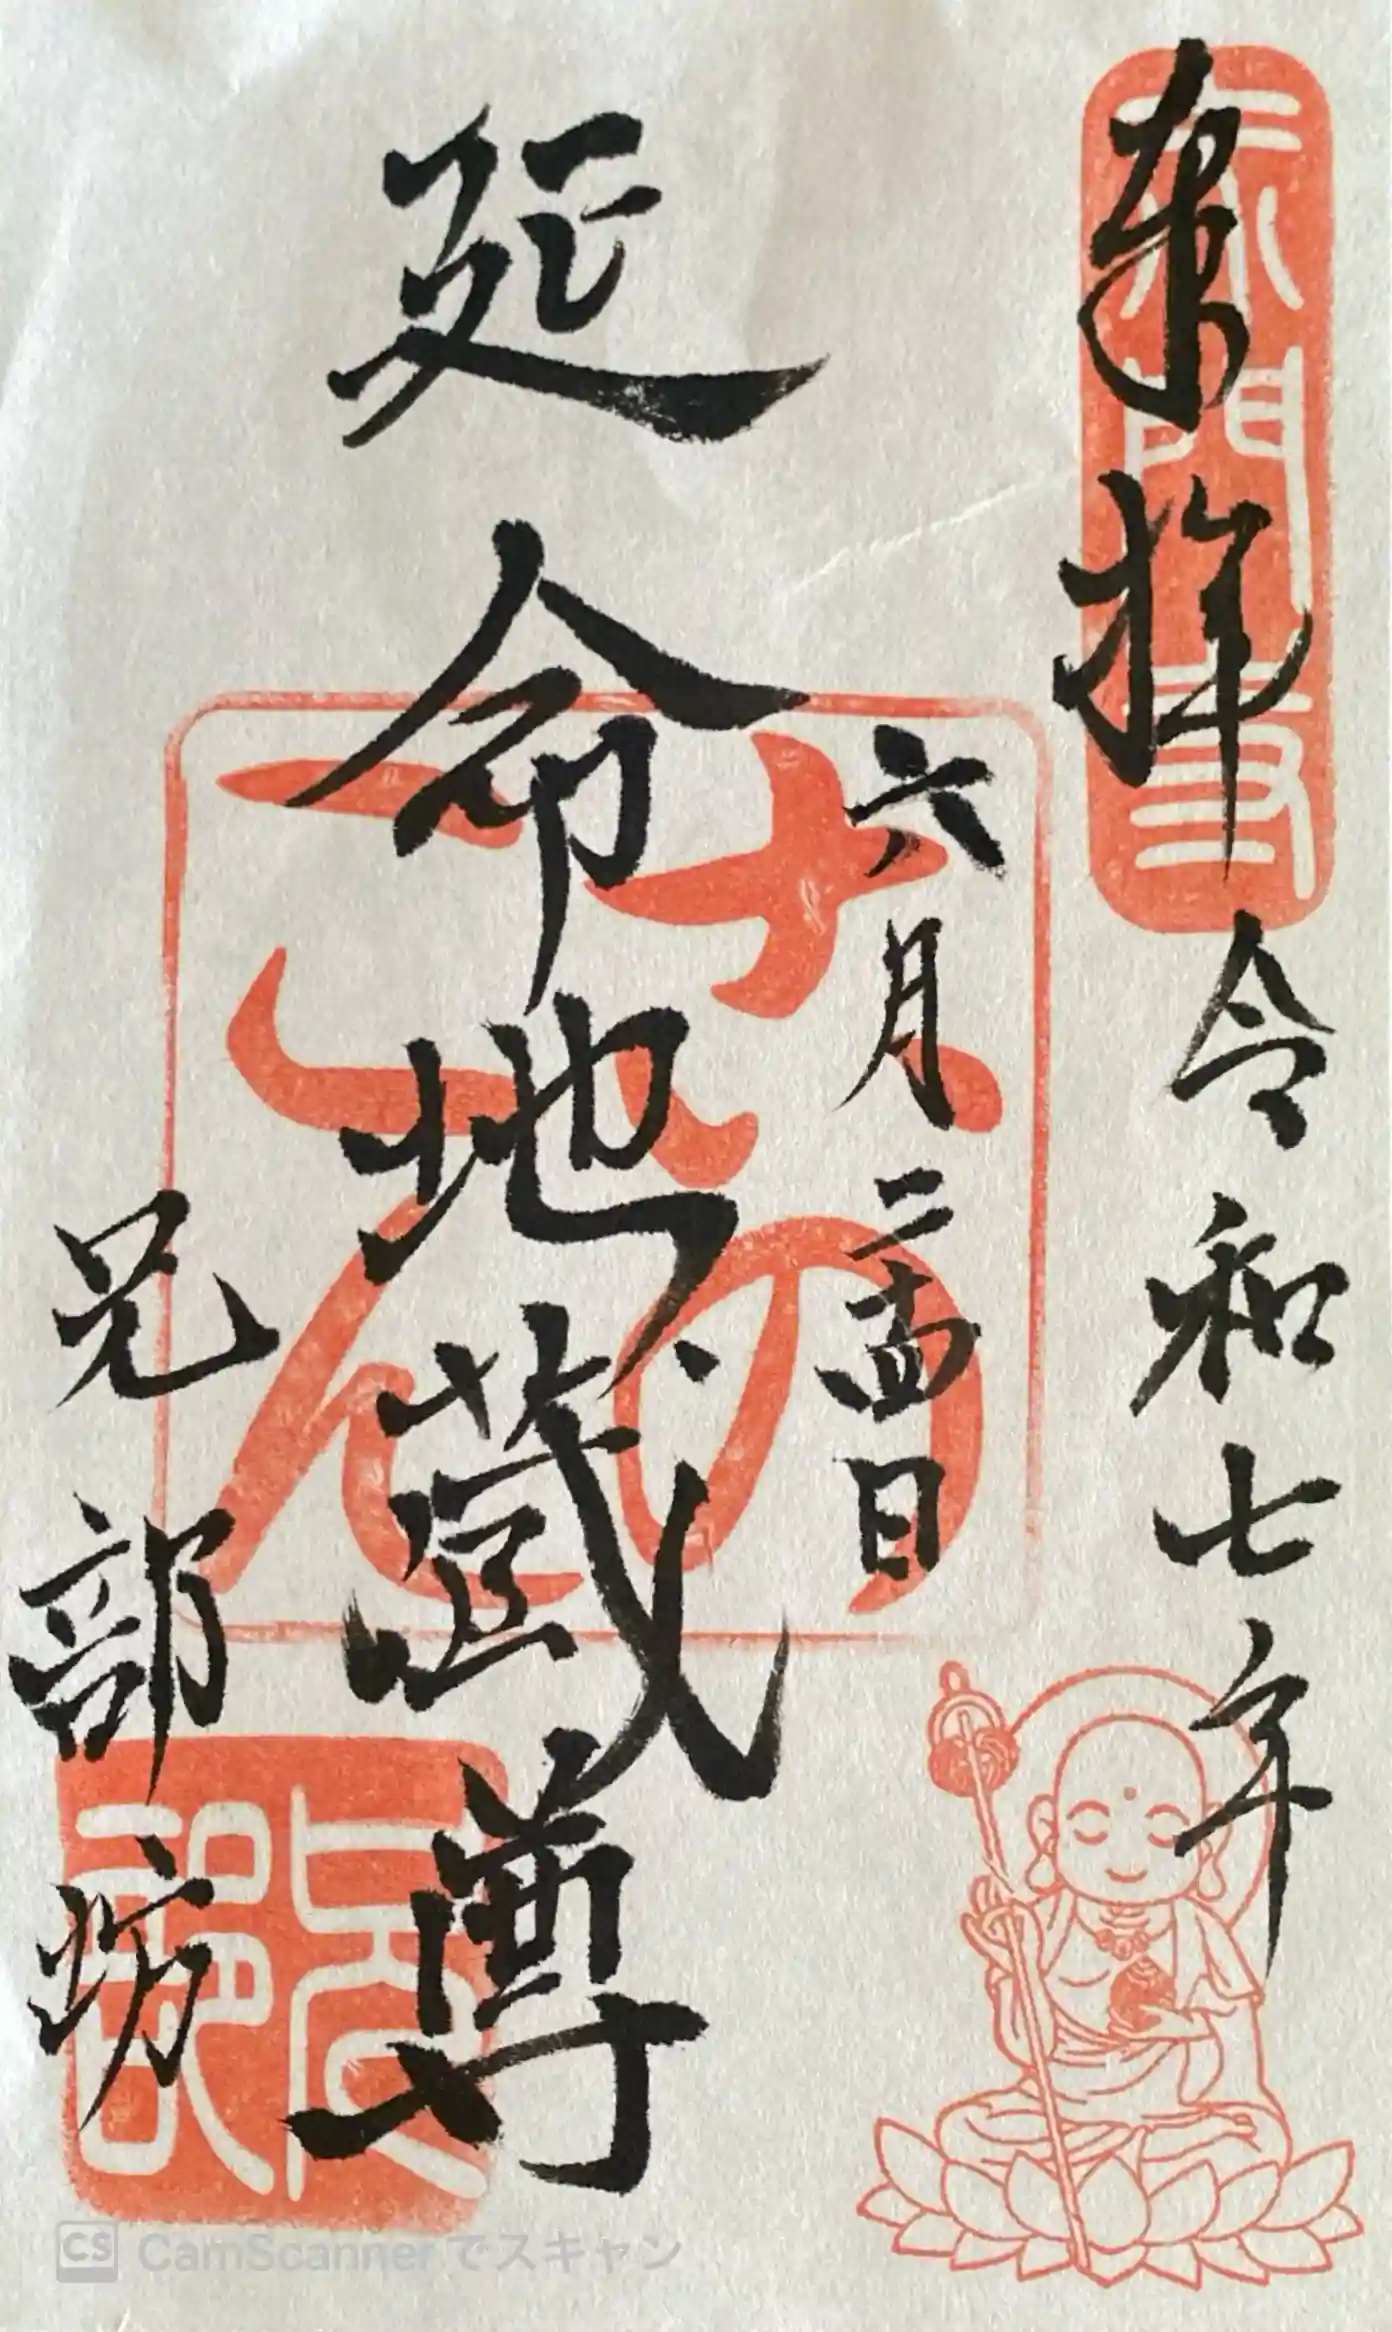 奉拝 令和七年
六月二十四日
延命地蔵尊
兄部坊
CS CamScannerでスキャン